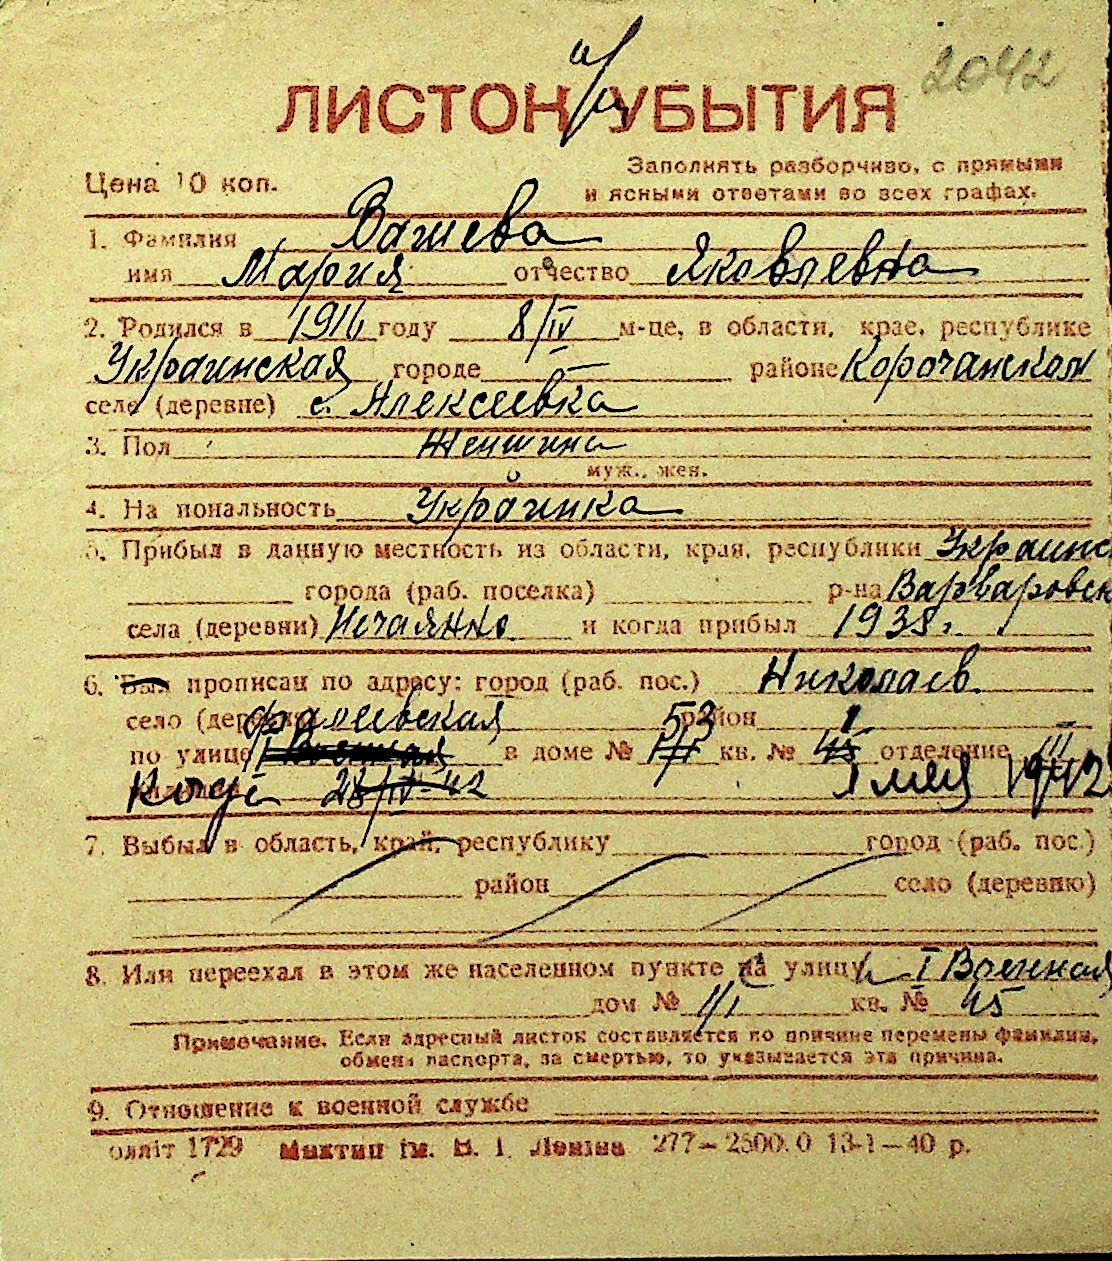 2042
ЛИСТОК УБЫТИЯ
Цена 10 коп.
Заполнять разборчиво, с прямыми
и ясными ответами во всех графах.
1. Фамилия Вашева
имя Мария отчество Яковлевна
2. Родился в 1916 году 8/IV м-це, в области, крае, республике
Украинская городе — районе Корочанском
селе (деревне) с. Алексеевка
3. Пол Женщина
муж., жен.
4. Национальность Украинка
5. Прибыл в данную местность из области, края, республики Украинс
города (раб. поселка) р-на Варваровск
села (деревни) Нечаянно и когда прибыл 1938.
6. Был прописан по адресу: город (раб. пос.) Николаев.
село (деревня) Фалеевская 53 район 1
по улице I Военная в доме № 1/1 кв. № 45 отделение III
Когда 28/IV-42 1 мая 1942
7. Выбыл в область, край, республику город (раб. пос.)
район село (деревню)
8. Или переехал в этом же населенном пункте на улицу I Военная
дом № 1/1 кв. № 45
Примечание. Если адресный листок составляется по причине перемены фамилии,
обмена паспорта, за смертью, то указывается эта причина.
9. Отношение к военной службе
олліт 1729 Миктип ім. В. І. Леніна 277—2500.0 13-1—40 р.